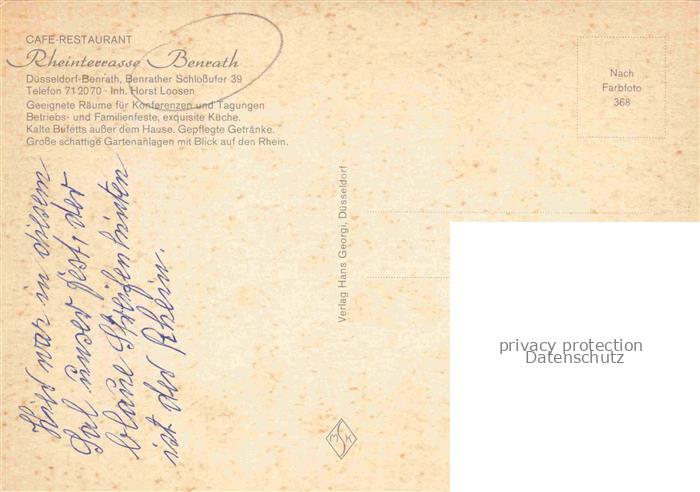 CAFE-RESTAURANT
Rheinterrasse Benrath
Düsseldorf-Benrath, Benrather Schloßufer 39
Telefon 71 20 70 · Inh. Horst Loosen
Geeignete Räume für Konferenzen und Tagungen
Betriebs- und Familienfeste, exquisite Küche.
Kalte Bufetts außer dem Hause. Gepflegte Getränke.
Große schattige Gartenanlagen mit Blick auf den Rhein.
Nach
Farbfoto
368
Hier war in diesem
Sal unser Fest, der
blaue Streifen hinten
ist der Rhein.
Verlag Hans Georgi, Düsseldorf
MSK
privacy protection
Datenschutz